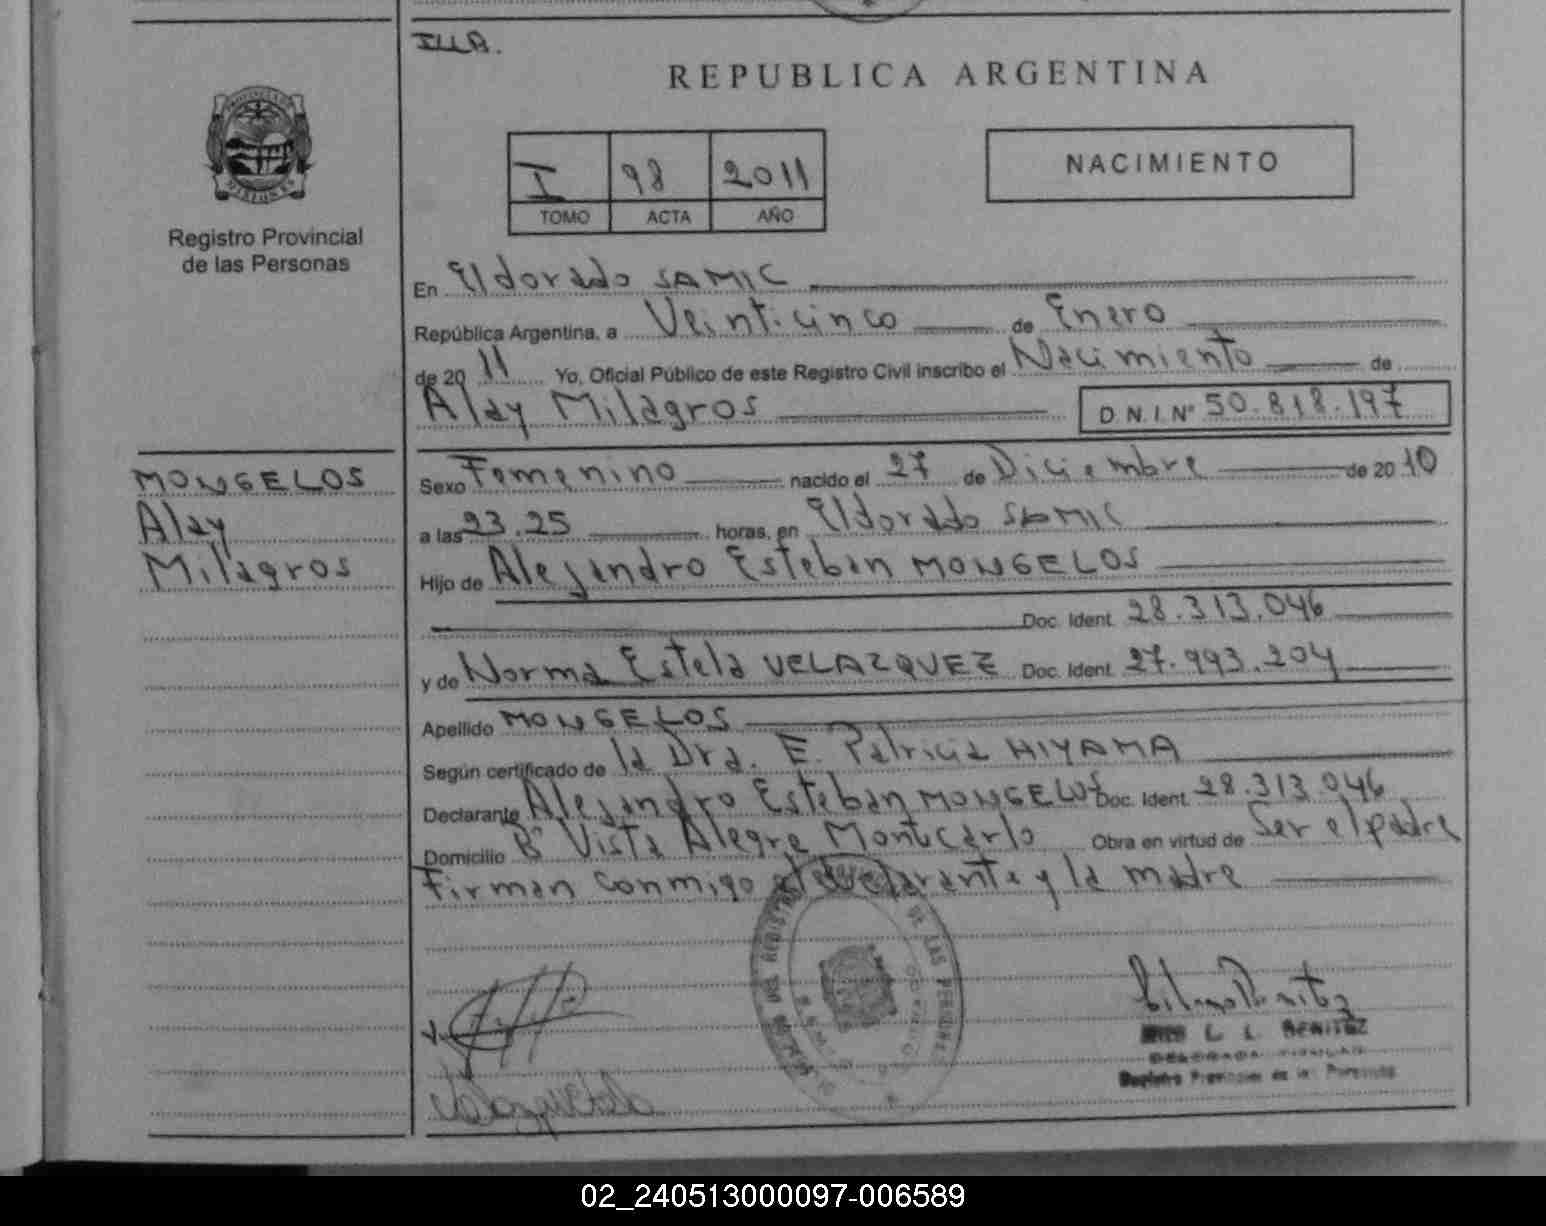 ILLA.
REPUBLICA ARGENTINA
I 98 2011
TOMO ACTA AÑO
NACIMIENTO
Registro Provincial
de las Personas
En Eldorado SAMIC
República Argentina, a Veinticinco de Enero
de 20 11 Yo, Oficial Público de este Registro Civil inscribo el Nacimiento de
Alay Milagros D.N.I. Nº 50.818.197
MONGELOS
Alay
Milagros
Sexo Femenino nacido el 27 de Diciembre de 20 10
a las 23.25 horas, en Eldorado SAMIC
Hijo de Alejandro Esteban MONGELOS
Doc. Ident. 28.313.046
y de Norma Estela VELAZQUEZ Doc. Ident. 27.993.204
Apellido MONGELOS
Según certificado de la Dra. E. Patricia HIYAMA
Declarante Alejandro Esteban MONGELOS Doc. Ident. 28.313.046
Domicilio Bº Vista Alegre Montecarlo Obra en virtud de Ser el padre
Firman conmigo el declarante y la madre
L. L. BENITEZ
Registro Provincial de las Personas
02_240513000097-006589